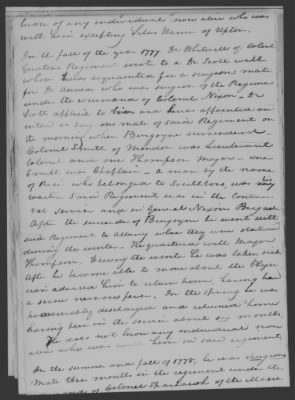 know of any individual now alive who was
with him excepting Silas Warren of Upton.
In the fall of the year 1777 Dr Whitwell of Colonel
Regiment wrote to a Dr Scott with
whom I was acquainted for a surgeons mate
for Dr who was surgeon of the Regiment
under the command of Colonel Nixon. Dr
Scott applied to him and he was appointed as
surgeons mate of said Regiment on
the morning when Burgoyne surrendered
Colonel Smith of Mendon was Lieutenant
Colonel and one Thompson Major - one
Smith was Chaplain - a man by the name
of Rice who belonged to was
waiter. Said Regiment was in the Continental
service and in General Nixons Brigade
After the surrender of Burgoyne he went with
said Regiment to Albany where they were stationed
during the winter. He quartered with Major
Thompson. During the winter he was taken sick
after he became able to move about the Physician
advised him to return home, having had
a severe nervous fever. In the spring he was
honorably discharged and returned home
having been in the service about six months.
He does not know any individual now
alive who was with him in said regiment.
In the summer and fall of 1778. he was Surgeons
Mate three months in the regiment under the
command of Colonel of the Massa